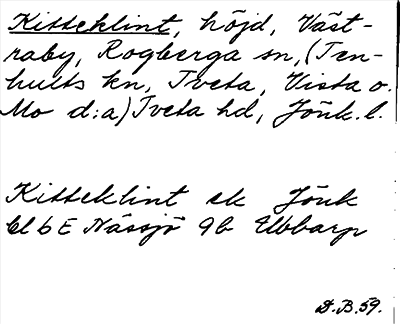 Kitteklint, höjd, Väst-
raby, Rogberga sn, (Ten-
hults kn, Tveta, Vista o.
Mo d:a) Tveta hd, Jönk. l.
Kitteklint ek Jönk
bl 6E Nässjö 9b Ubbarp
D.B. 59.